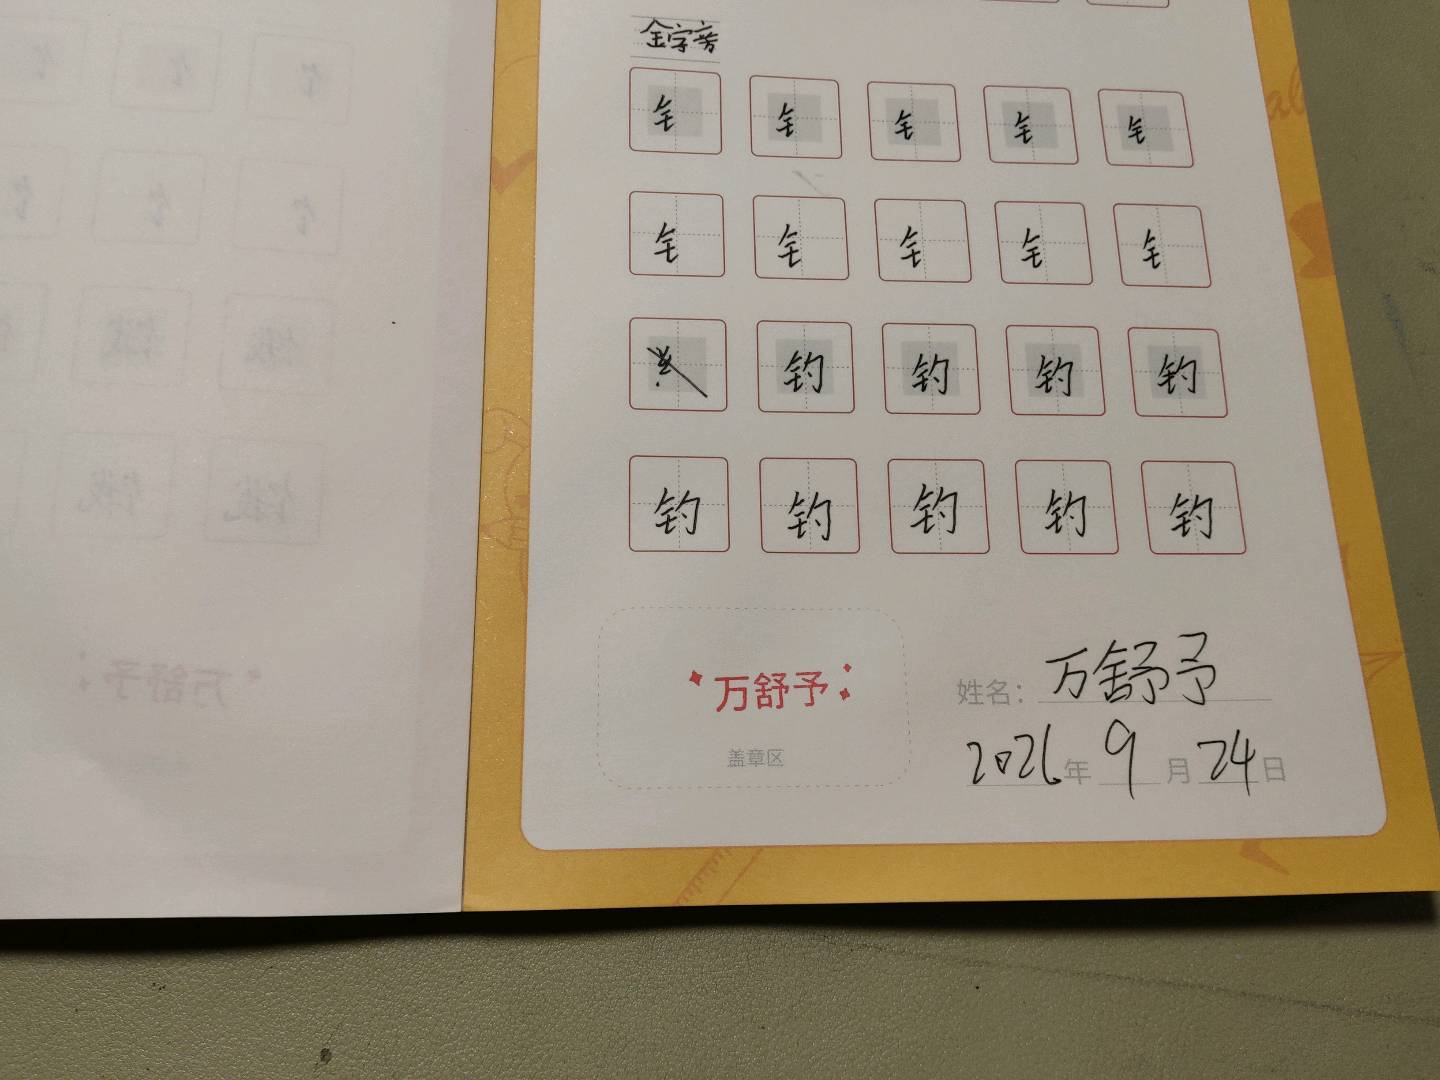 金字旁
钅 钅 钅 钅 钅
钅 钅 钅 钅 钅
钓 钓 钓 钓
钓 钓 钓 钓 钓
万舒予
盖章区
姓名：万舒予
2026年9月24日